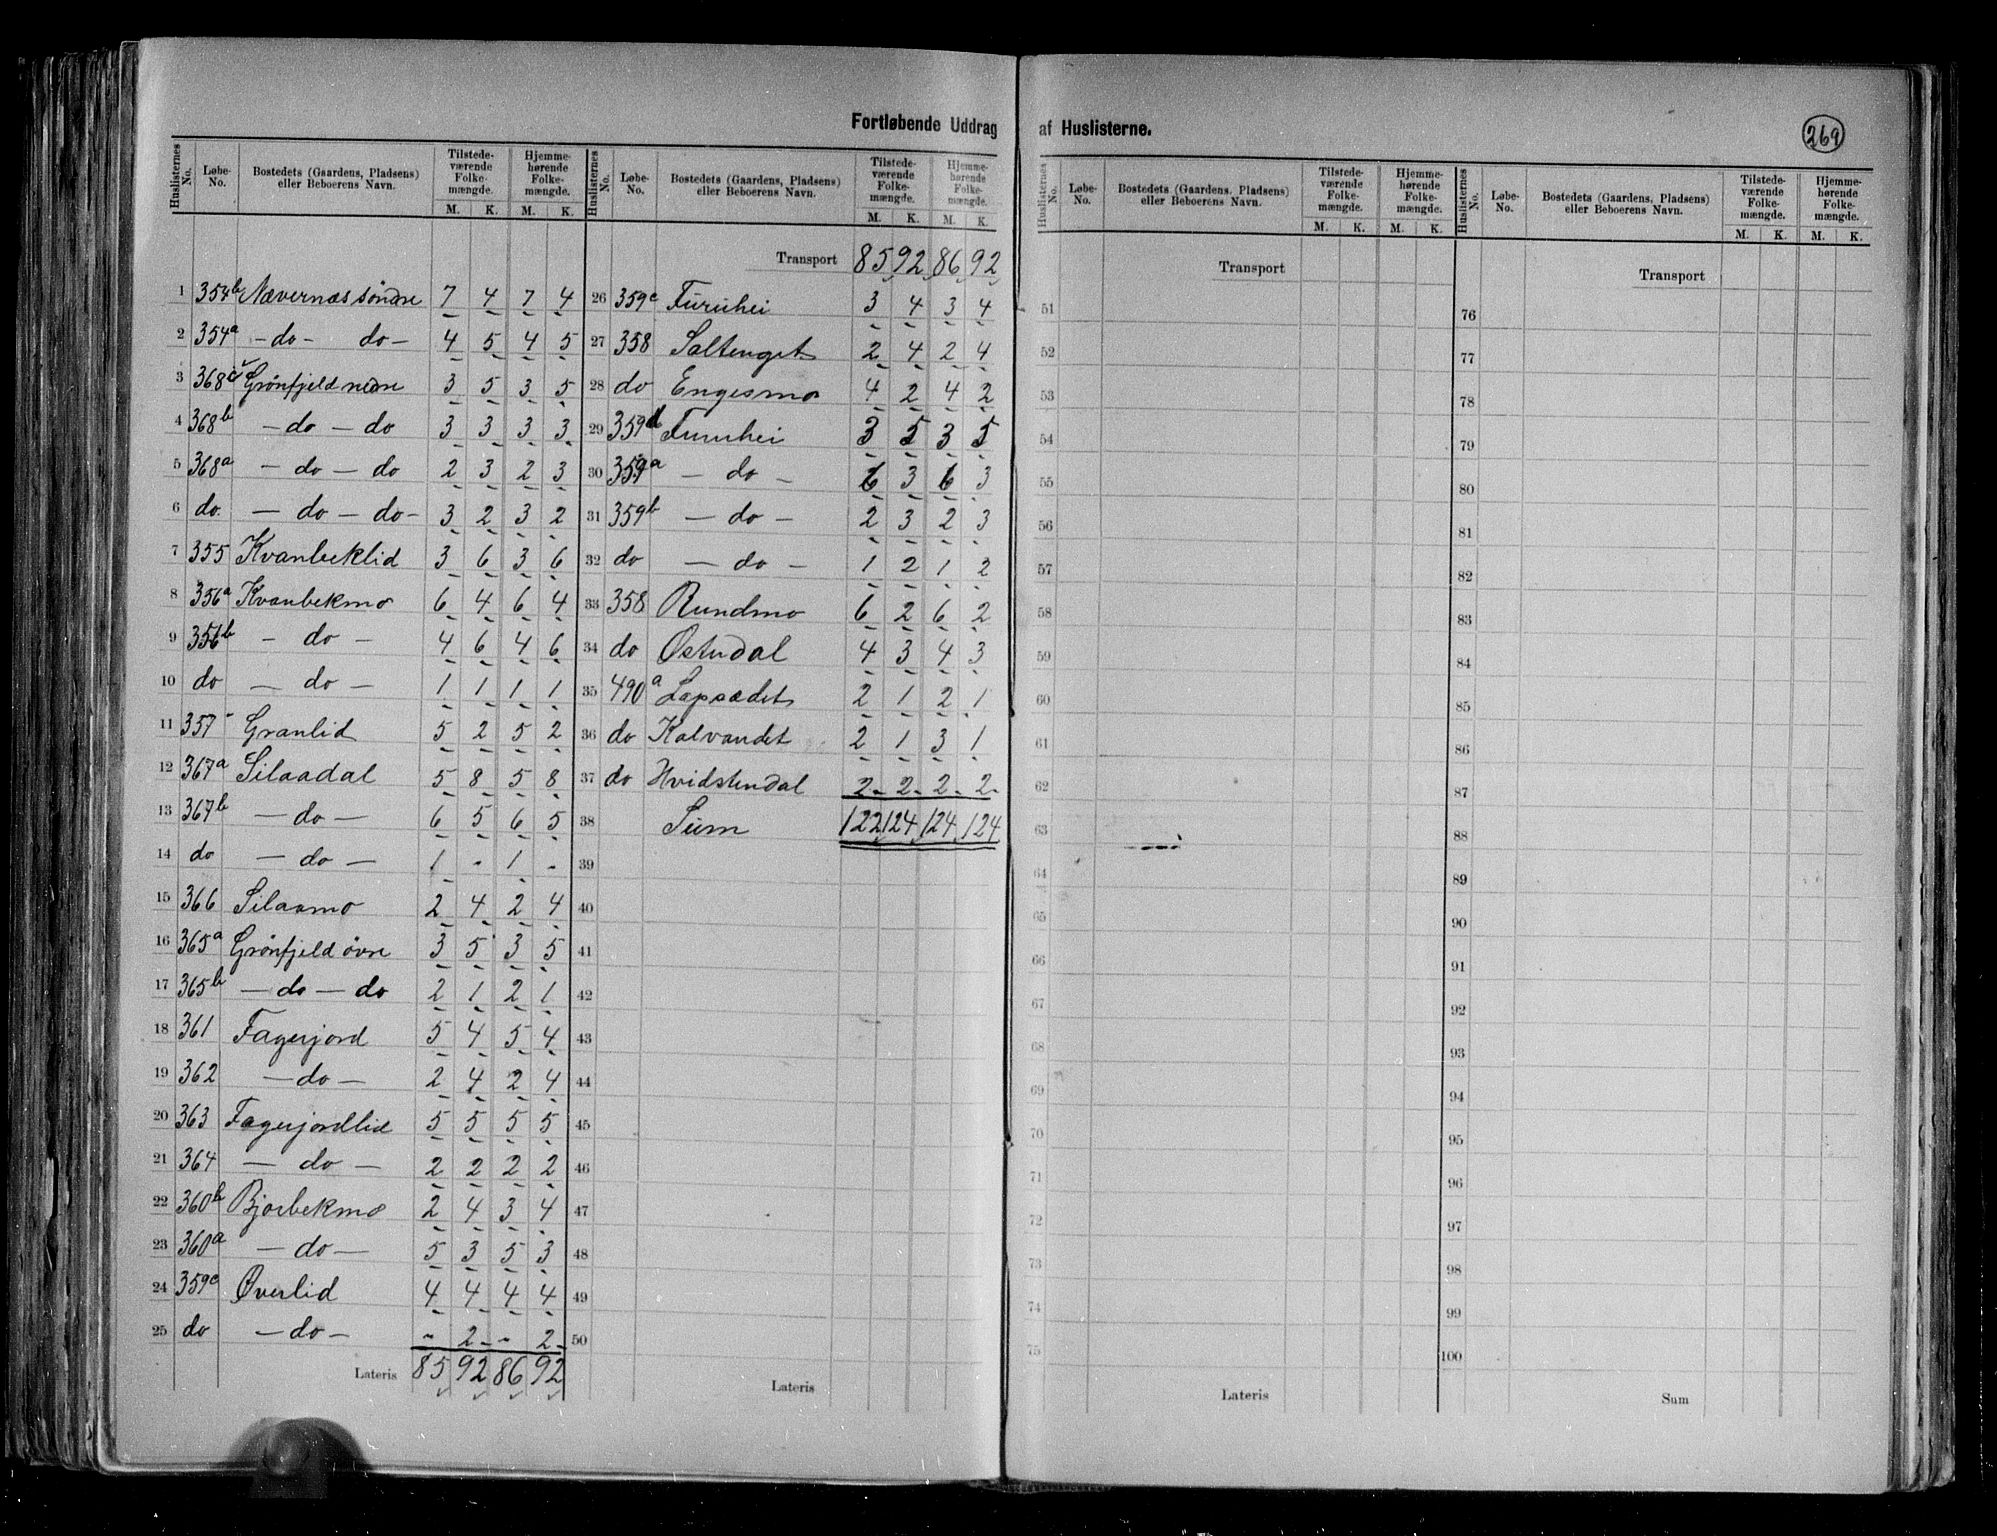 Fortløbende Uddrag af Huslisterne.
269
Huslisternes No. | Løbe-No. | Bostedets (Gaardens, Pladsens) eller Beboerens Navn. | Tilstedeværende Folkemængde. M. K. | Hjemmehørende Folkemængde. M. K.
1 354b Nævernæs søndre 7 4 7 4
2 354a - do - do - 4 5 4 5
3 368c Grønfjeld nedre 3 5 3 5
4 368b - do - do 3 3 3 3
5 368a - do - do 2 3 2 3
6 do - do - do - 3 2 3 2
7 355 Kvanbeklid 3 6 3 6
8 356a Kvanbekmo 6 4 6 4
9 356b - do - 4 6 4 6
10 do - do - 1 1 1 1
11 357 Granlid 5 2 5 2
12 367a Silaadal 5 8 5 8
13 367b - do - 6 5 6 5
14 do - do - 1 - 1 -
15 366 Silaamo 2 4 2 4
16 365a Grønfjeld øvre 3 5 3 5
17 365b - do - do 2 1 2 1
18 361 Fagerjord 5 4 5 4
19 362 - do - 2 4 2 4
20 363 Fagerjordlid 5 5 5 5
21 364 - do - 2 2 2 2
22 360b Bjørbekmo 2 4 3 4
23 360a - do - 5 3 5 3
24 359e Øverlid 4 4 4 4
25 do - do - - 2 - 2
Lateris 85 92 86 92
Huslisternes No. | Løbe-No. | Bostedets (Gaardens, Pladsens) eller Beboerens Navn. | Tilstedeværende Folkemængde. M. K. | Hjemmehørende Folkemængde. M. K.
Transport 85 92 86 92
26 359c Furuhei 3 4 3 4
27 358 Saltenget 2 4 2 4
28 do Engesmo 4 2 4 2
29 359d Furuhei 3 5 3 5
30 359a - do - 6 3 6 3
31 359b - do - 2 3 2 3
32 do - do - 1 2 1 2
33 358 Rundmo 6 2 6 2
34 do Østerdal 4 3 4 3
35 490a Lapsædet 2 1 2 1
36 do Kalvandet 2 1 3 1
37 do Hvidstendal 2 2 2 2
38 Sum 122 124 124 124
39
40
41
42
43
44
45
46
47
48
49
50
Lateris
Huslisternes No. | Løbe-No. | Bostedets (Gaardens, Pladsens) eller Beboerens Navn. | Tilstedeværende Folkemængde. M. K. | Hjemmehørende Folkemængde. M. K.
Transport
51
52
53
54
55
56
57
58
59
60
61
62
63
64
65
66
67
68
69
70
71
72
73
74
75
Lateris
Huslisternes No. | Løbe-No. | Bostedets (Gaardens, Pladsens) eller Beboerens Navn. | Tilstedeværende Folkemængde. M. K. | Hjemmehørende Folkemængde. M. K.
Transport
76
77
78
79
80
81
82
83
84
85
86
87
88
89
90
91
92
93
94
95
96
97
98
99
100
Sum